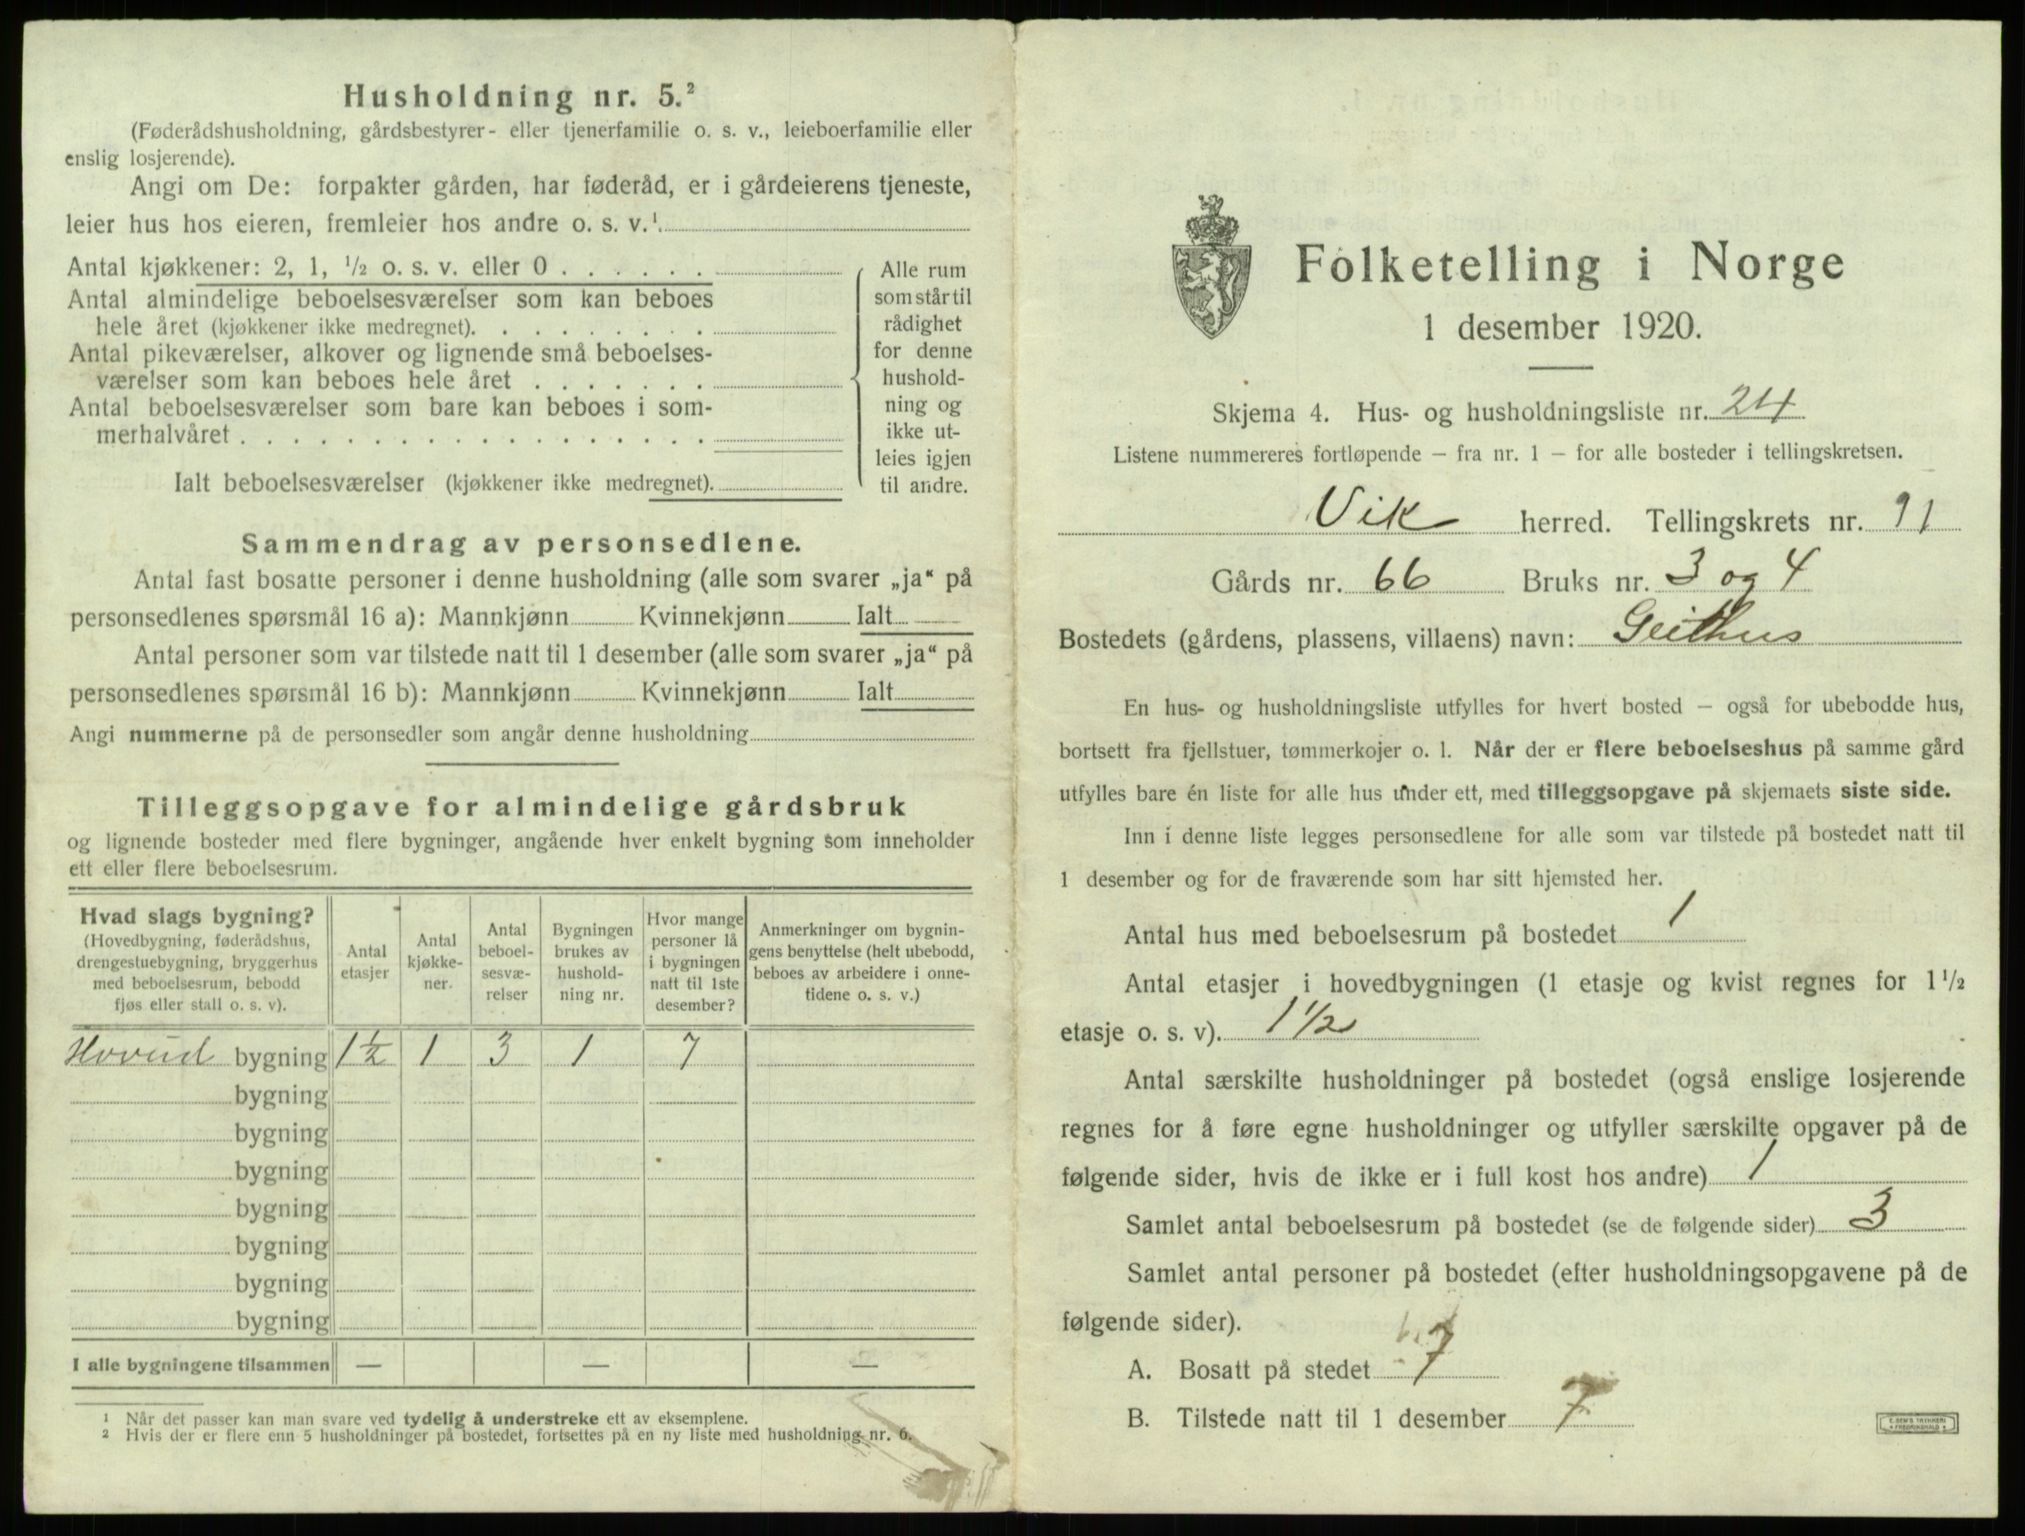 Husholdning nr. 5.²
(Føderådshusholdning, gårdsbestyrer- eller tjenerfamilie o. s. v., leieboerfamilie eller
enslig losjerende).
Angi om De: forpakter gården, har føderåd, er i gårdeierens tjeneste,
leier hus hos eieren, fremleier hos andre o. s. v.¹
Antal kjøkkener: 2, 1, ½ o. s. v. eller 0 . . . . . .
Antal almindelige beboelsesværelser som kan beboes
hele året (kjøkkener ikke medregnet). . . . . . . . .
Antal pikeværelser, alkover og lignende små beboelses-
værelser som kan beboes hele året . . . . . . .
Antal beboelsesværelser som bare kan beboes i som-
merhalvåret . . . . . . . . . . . . . . . . . .
Ialt beboelsesværelser (kjøkkener ikke medregnet).
Alle rum
som står til
rådighet
for denne
hushold-
ning og
ikke ut-
leies igjen
til andre.
Sammendrag av personsedlene.
Antal fast bosatte personer i denne husholdning (alle som svarer „ja“ på
personsedlenes spørsmål 16 a): Mannkjønn Kvinnekjønn Ialt
Antal personer som var tilstede natt til 1 desember (alle som svarer „ja“ på
personsedlenes spørsmål 16 b): Mannkjønn Kvinnekjønn Ialt
Angi nummerne på de personsedler som angår denne husholdning
Tilleggsopgave for almindelige gårdsbruk
og lignende bosteder med flere bygninger, angående hver enkelt bygning som inneholder
ett eller flere beboelsesrum.
Hvad slags bygning?
(Hovedbygning, føderådshus,
drengestuebygning, bryggerhus
med beboelsesrum, bebodd
fjøs eller stall o. s. v).
Antal
etasjer
Antal
kjøkke-
ner.
Antal
beboel-
sesvæ-
relser
Bygningen
brukes av
hushold-
ning nr.
Hvor mange
personer lå
i bygningen
natt til 1ste
desember?
Anmerkninger om bygnin-
gens benyttelse (helt ubebodd,
beboes av arbeidere i onne-
tidene o. s. v.)
Hovud bygning 1½ 1 3 1 7
bygning
bygning
bygning
bygning
bygning
bygning
bygning
I alle bygningene tilsammen — — —
¹ Når det passer kan man svare ved tydelig å understreke ett av eksemplene.
² Hvis der er flere enn 5 husholdninger på bostedet, fortsettes på en ny liste med husholdning nr. 6.
Folketelling i Norge
1 desember 1920.
Skjema 4. Hus- og husholdningsliste nr. 24
Listene nummereres fortløpende – fra nr. 1 – for alle bosteder i tellingskretsen.
Vik herred. Tellingskrets nr. 11
Gårds nr. 66 Bruks nr. 3 og 4
Bostedets (gårdens, plassens, villaens) navn: Geithus
En hus- og husholdningsliste utfylles for hvert bosted – også for ubebodde hus,
bortsett fra fjellstuer, tømmerkojer o. l. Når der er flere beboelseshus på samme gård
utfylles bare én liste for alle hus under ett, med tilleggsopgave på skjemaets siste side.
Inn i denne liste legges personsedlene for alle som var tilstede på bostedet natt til
1 desember og for de fraværende som har sitt hjemsted her.
Antal hus med beboelsesrum på bostedet 1
Antal etasjer i hovedbygningen (1 etasje og kvist regnes for 1½
etasje o. s. v). 1½
Antal særskilte husholdninger på bostedet (også enslige losjerende
regnes for å føre egne husholdninger og utfyller særskilte opgaver på de
følgende sider, hvis de ikke er i full kost hos andre) 1
Samlet antal beboelsesrum på bostedet (se de følgende sider) 3
Samlet antal personer på bostedet (efter husholdningsopgavene på de
følgende sider).
A. Bosatt på stedet 7
B. Tilstede natt til 1 desember 7
E. SEM'S TRYKKERI
FREDRIKSHALD